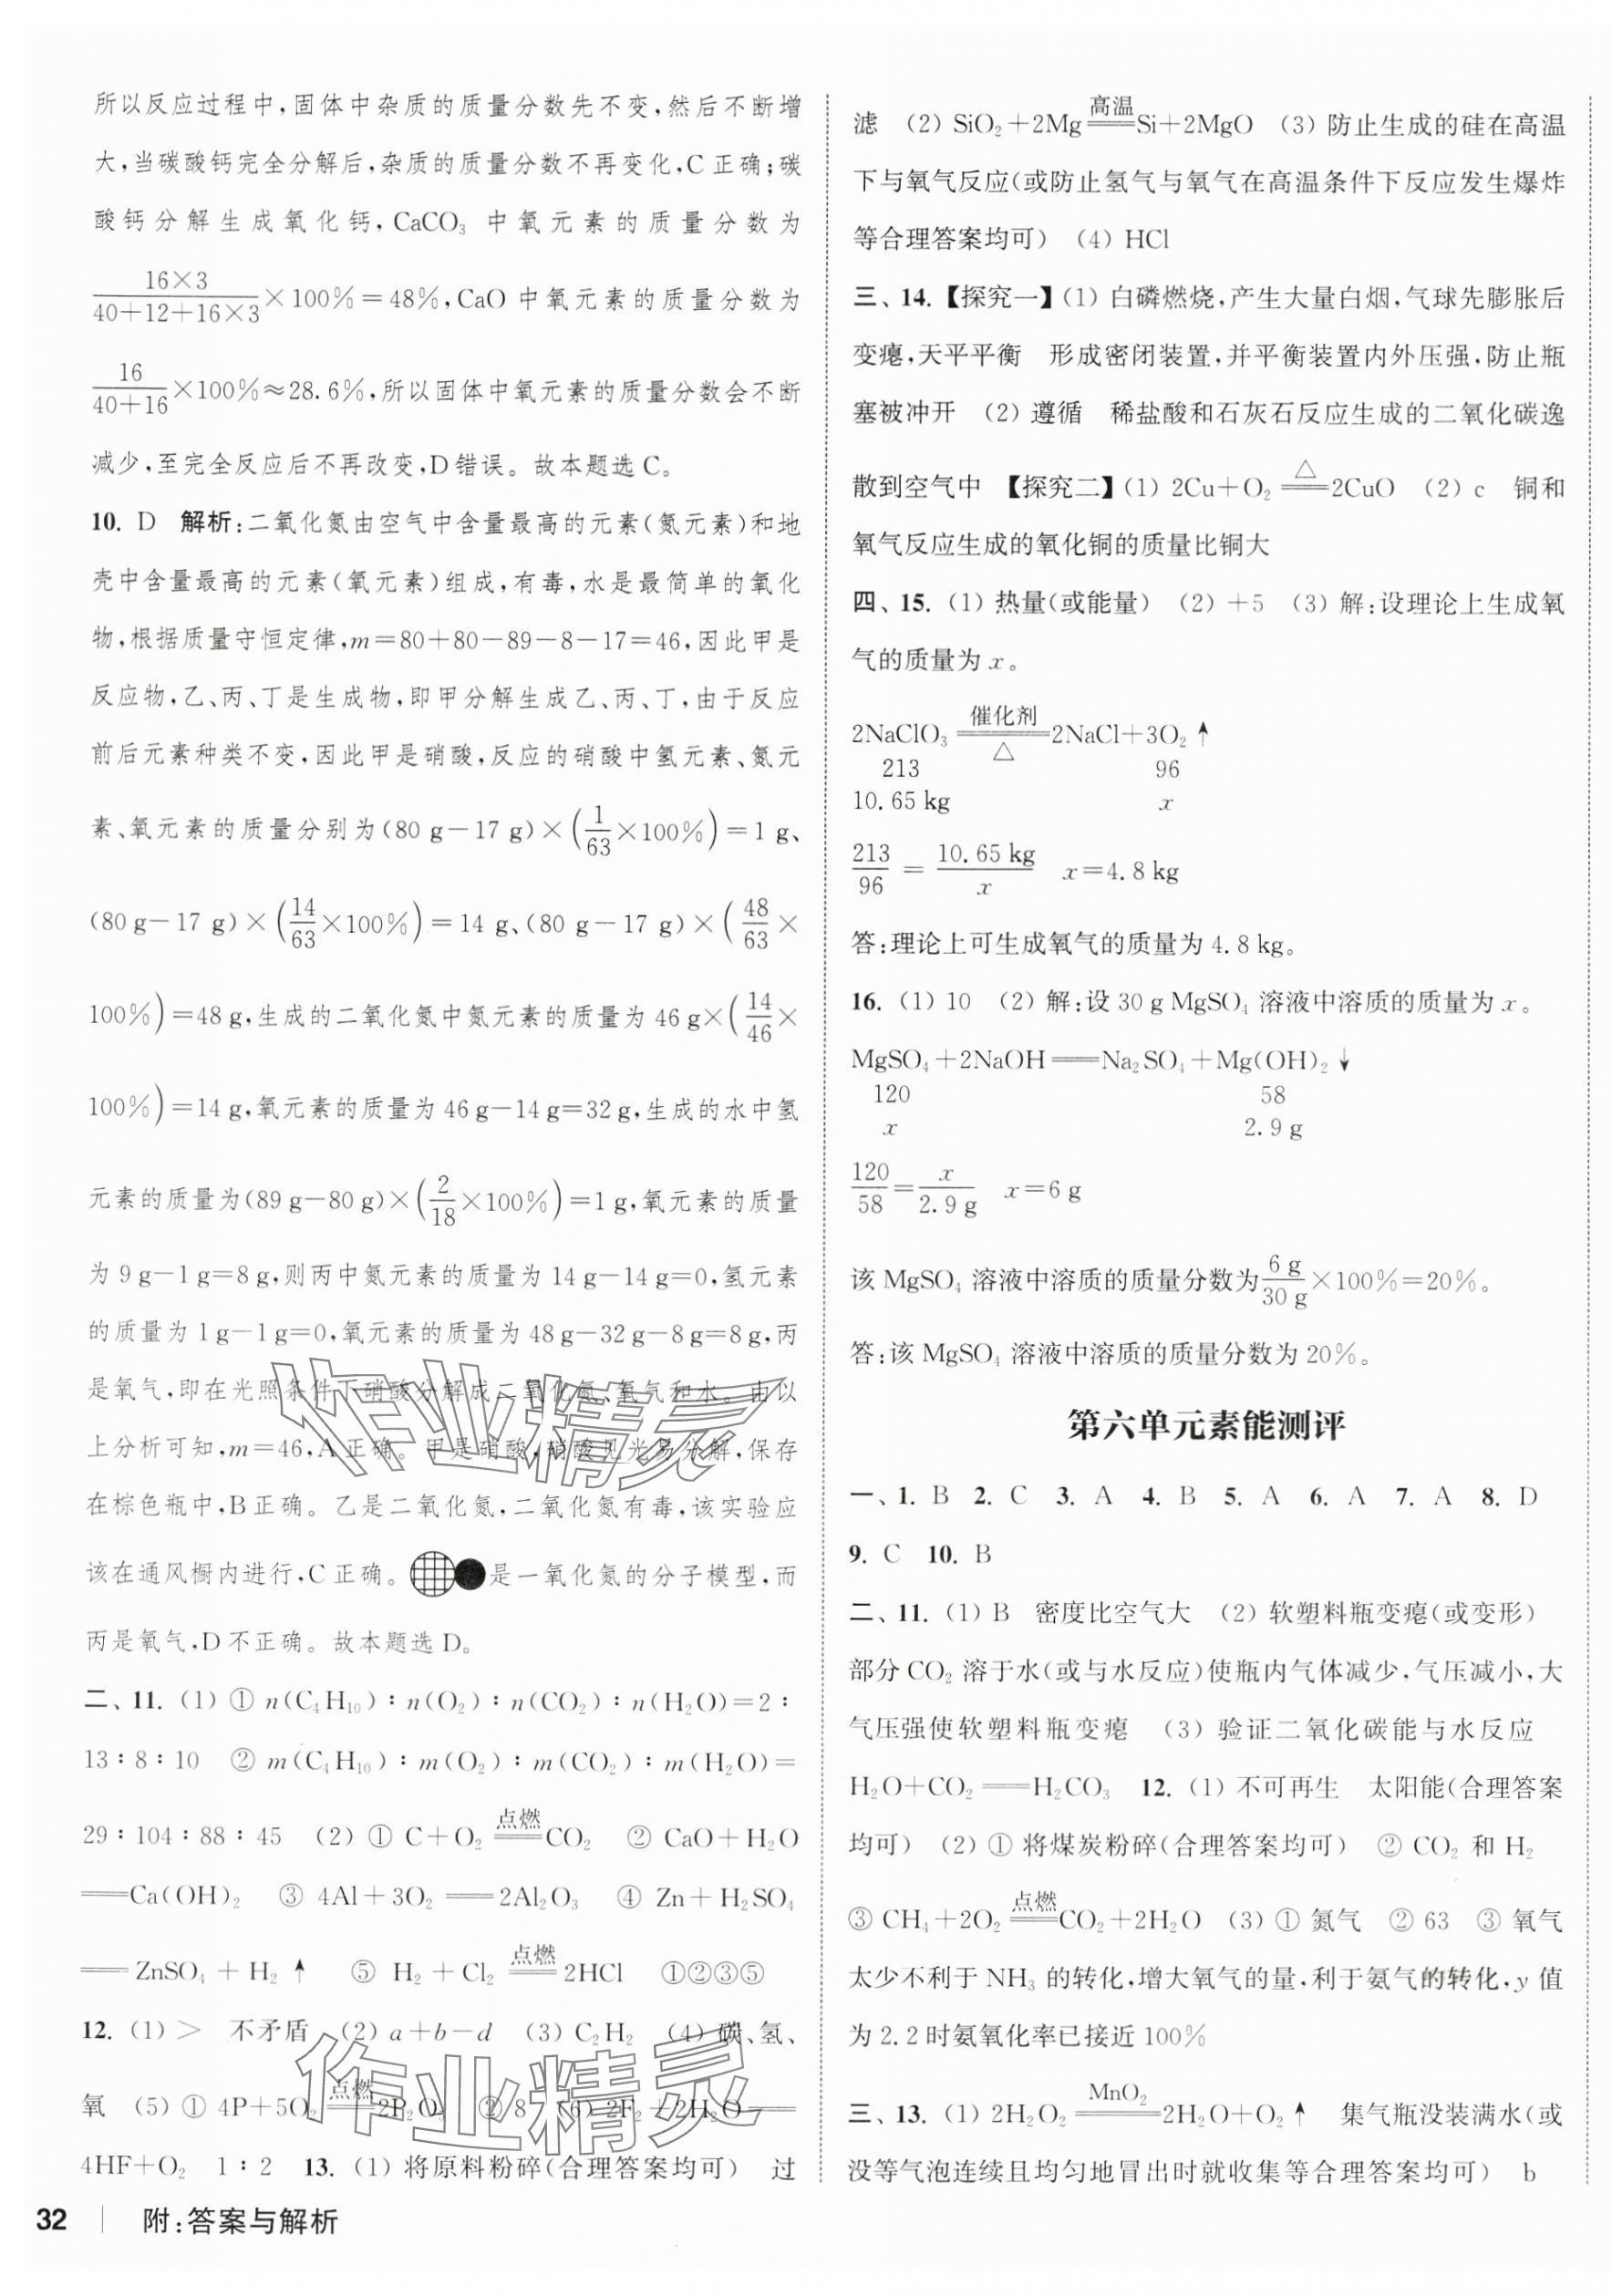 所以反应过程中,固体中杂质的质量分数先不变,然后不断增
大,当碳酸钙完全分解后,杂质的质量分数不再变化,C 正确;碳
酸钙分解生成氧化钙,CaCO₃ 中氧元素的质量分数为
16×3/(40+12+16×3)×100%=48%,CaO 中氧元素的质量分数为
16/(40+16)×100%≈28.6%,所以固体中氧元素的质量分数会不断
减少,至完全反应后不再改变,D 错误。故本题选 C。
10. D 解析:二氧化氮由空气中含量最高的元素(氮元素)和地
壳中含量最高的元素(氧元素)组成,有毒,水是最简单的氧化
物,根据质量守恒定律,m=80+80-89-8-17=46,因此甲是
反应物,乙、丙、丁是生成物,即甲分解生成乙、丙、丁,由于反应
前后元素种类不变,因此甲是硝酸,反应的硝酸中氢元素、氮元
素、氧元素的质量分别为(80 g-17 g)×(1/63×100%)=1 g、
(80 g-17 g)×(14/63×100%)=14 g、(80 g-17 g)×(48/63×
100%)=48 g,生成的二氧化氮中氮元素的质量为 46 g×(14/46×
100%)=14 g,氧元素的质量为 46 g-14 g=32 g,生成的水中氢
元素的质量为(89 g-80 g)×(2/18×100%)=1 g,氧元素的质量
为 9 g-1 g=8 g,则丙中氮元素的质量为 14 g-14 g=0,氢元素
的质量为 1 g-1 g=0,氧元素的质量为 48 g-32 g-8 g=8 g,丙
是氧气,即在光照条件下硝酸分解成二氧化氮、氧气和水。由以
上分析可知,m=46,A 正确。甲是硝酸,硝酸见光易分解,保存
在棕色瓶中,B 正确。乙是二氧化氮,二氧化氮有毒,该实验应
该在通风橱内进行,C 正确。是一氧化氮的分子模型,而
丙是氧气,D 不正确。故本题选 D。
二、11. (1) ① n(C₄H₁₀)∶n(O₂)∶n(CO₂)∶n(H₂O)=2∶
13∶8∶10 ② m(C₄H₁₀)∶m(O₂)∶m(CO₂)∶m(H₂O)=
29∶104∶88∶45 (2) ① C+O₂ ══点燃══ CO₂ ② CaO+H₂O
══Ca(OH)₂ ③ 4Al+3O₂ ══ 2Al₂O₃ ④ Zn+H₂SO₄
══ ZnSO₄+H₂↑ ⑤ H₂+Cl₂ ══点燃══ 2HCl ①②③⑤
12. (1) > 不矛盾 (2) a+b-d (3) C₂H₂ (4) 碳、氢、
氧 (5) ① 4P+5O₂ ══点燃══ 2P₂O₅ ② 8 (6) 2F₂+2H₂O══
4HF+O₂ 1∶2 13. (1) 将原料粉碎(合理答案均可) 过
32 附:答案与解析
滤 (2) SiO₂+2Mg ══高温══ Si+2MgO (3) 防止生成的硅在高温
下与氧气反应(或防止氢气与氧气在高温条件下反应发生爆炸
等合理答案均可) (4) HCl
三、14.【探究一】(1) 白磷燃烧,产生大量白烟,气球先膨胀后
变瘪,天平平衡 形成密闭装置,并平衡装置内外压强,防止瓶
塞被冲开 (2) 遵循 稀盐酸和石灰石反应生成的二氧化碳逸
散到空气中 【探究二】(1) 2Cu+O₂ ══△══ 2CuO (2) c 铜和
氧气反应生成的氧化铜的质量比铜大
四、15. (1) 热量(或能量) (2) +5 (3) 解:设理论上生成氧
气的质量为 x。
2NaClO₃ ══催化剂/△══ 2NaCl+3O₂↑
213 96
10.65 kg x
213/96=10.65 kg/x x=4.8 kg
答:理论上可生成氧气的质量为 4.8 kg。
16. (1) 10 (2) 解:设 30 g MgSO₄ 溶液中溶质的质量为 x。
MgSO₄+2NaOH══Na₂SO₄+Mg(OH)₂↓
120 58
x 2.9 g
120/58=x/2.9 g x=6 g
该 MgSO₄ 溶液中溶质的质量分数为6 g/30 g×100%=20%。
答:该 MgSO₄ 溶液中溶质的质量分数为 20%。
第六单元素能测评
一、1. B 2. C 3. A 4. B 5. A 6. A 7. A 8. D
9. C 10. B
二、11. (1) B 密度比空气大 (2) 软塑料瓶变瘪(或变形)
部分 CO₂ 溶于水(或与水反应)使瓶内气体减少,气压减小,大
气压强使软塑料瓶变瘪 (3) 验证二氧化碳能与水反应
H₂O+CO₂══H₂CO₃ 12. (1) 不可再生 太阳能(合理答案
均可) (2) ① 将煤炭粉碎(合理答案均可) ② CO₂ 和 H₂
③ CH₄+2O₂ ══点燃══ CO₂+2H₂O (3) ① 氮气 ② 63 ③ 氧气
太少不利于 NH₃ 的转化,增大氧气的量,利于氨气的转化,y 值
为 2.2 时氨氧化率已接近 100%
三、13. (1) 2H₂O₂ ══MnO₂══ 2H₂O+O₂↑ 集气瓶没装满水(或
没等气泡连续且均匀地冒出时就收集等合理答案均可) b
作业精灵
作业精灵